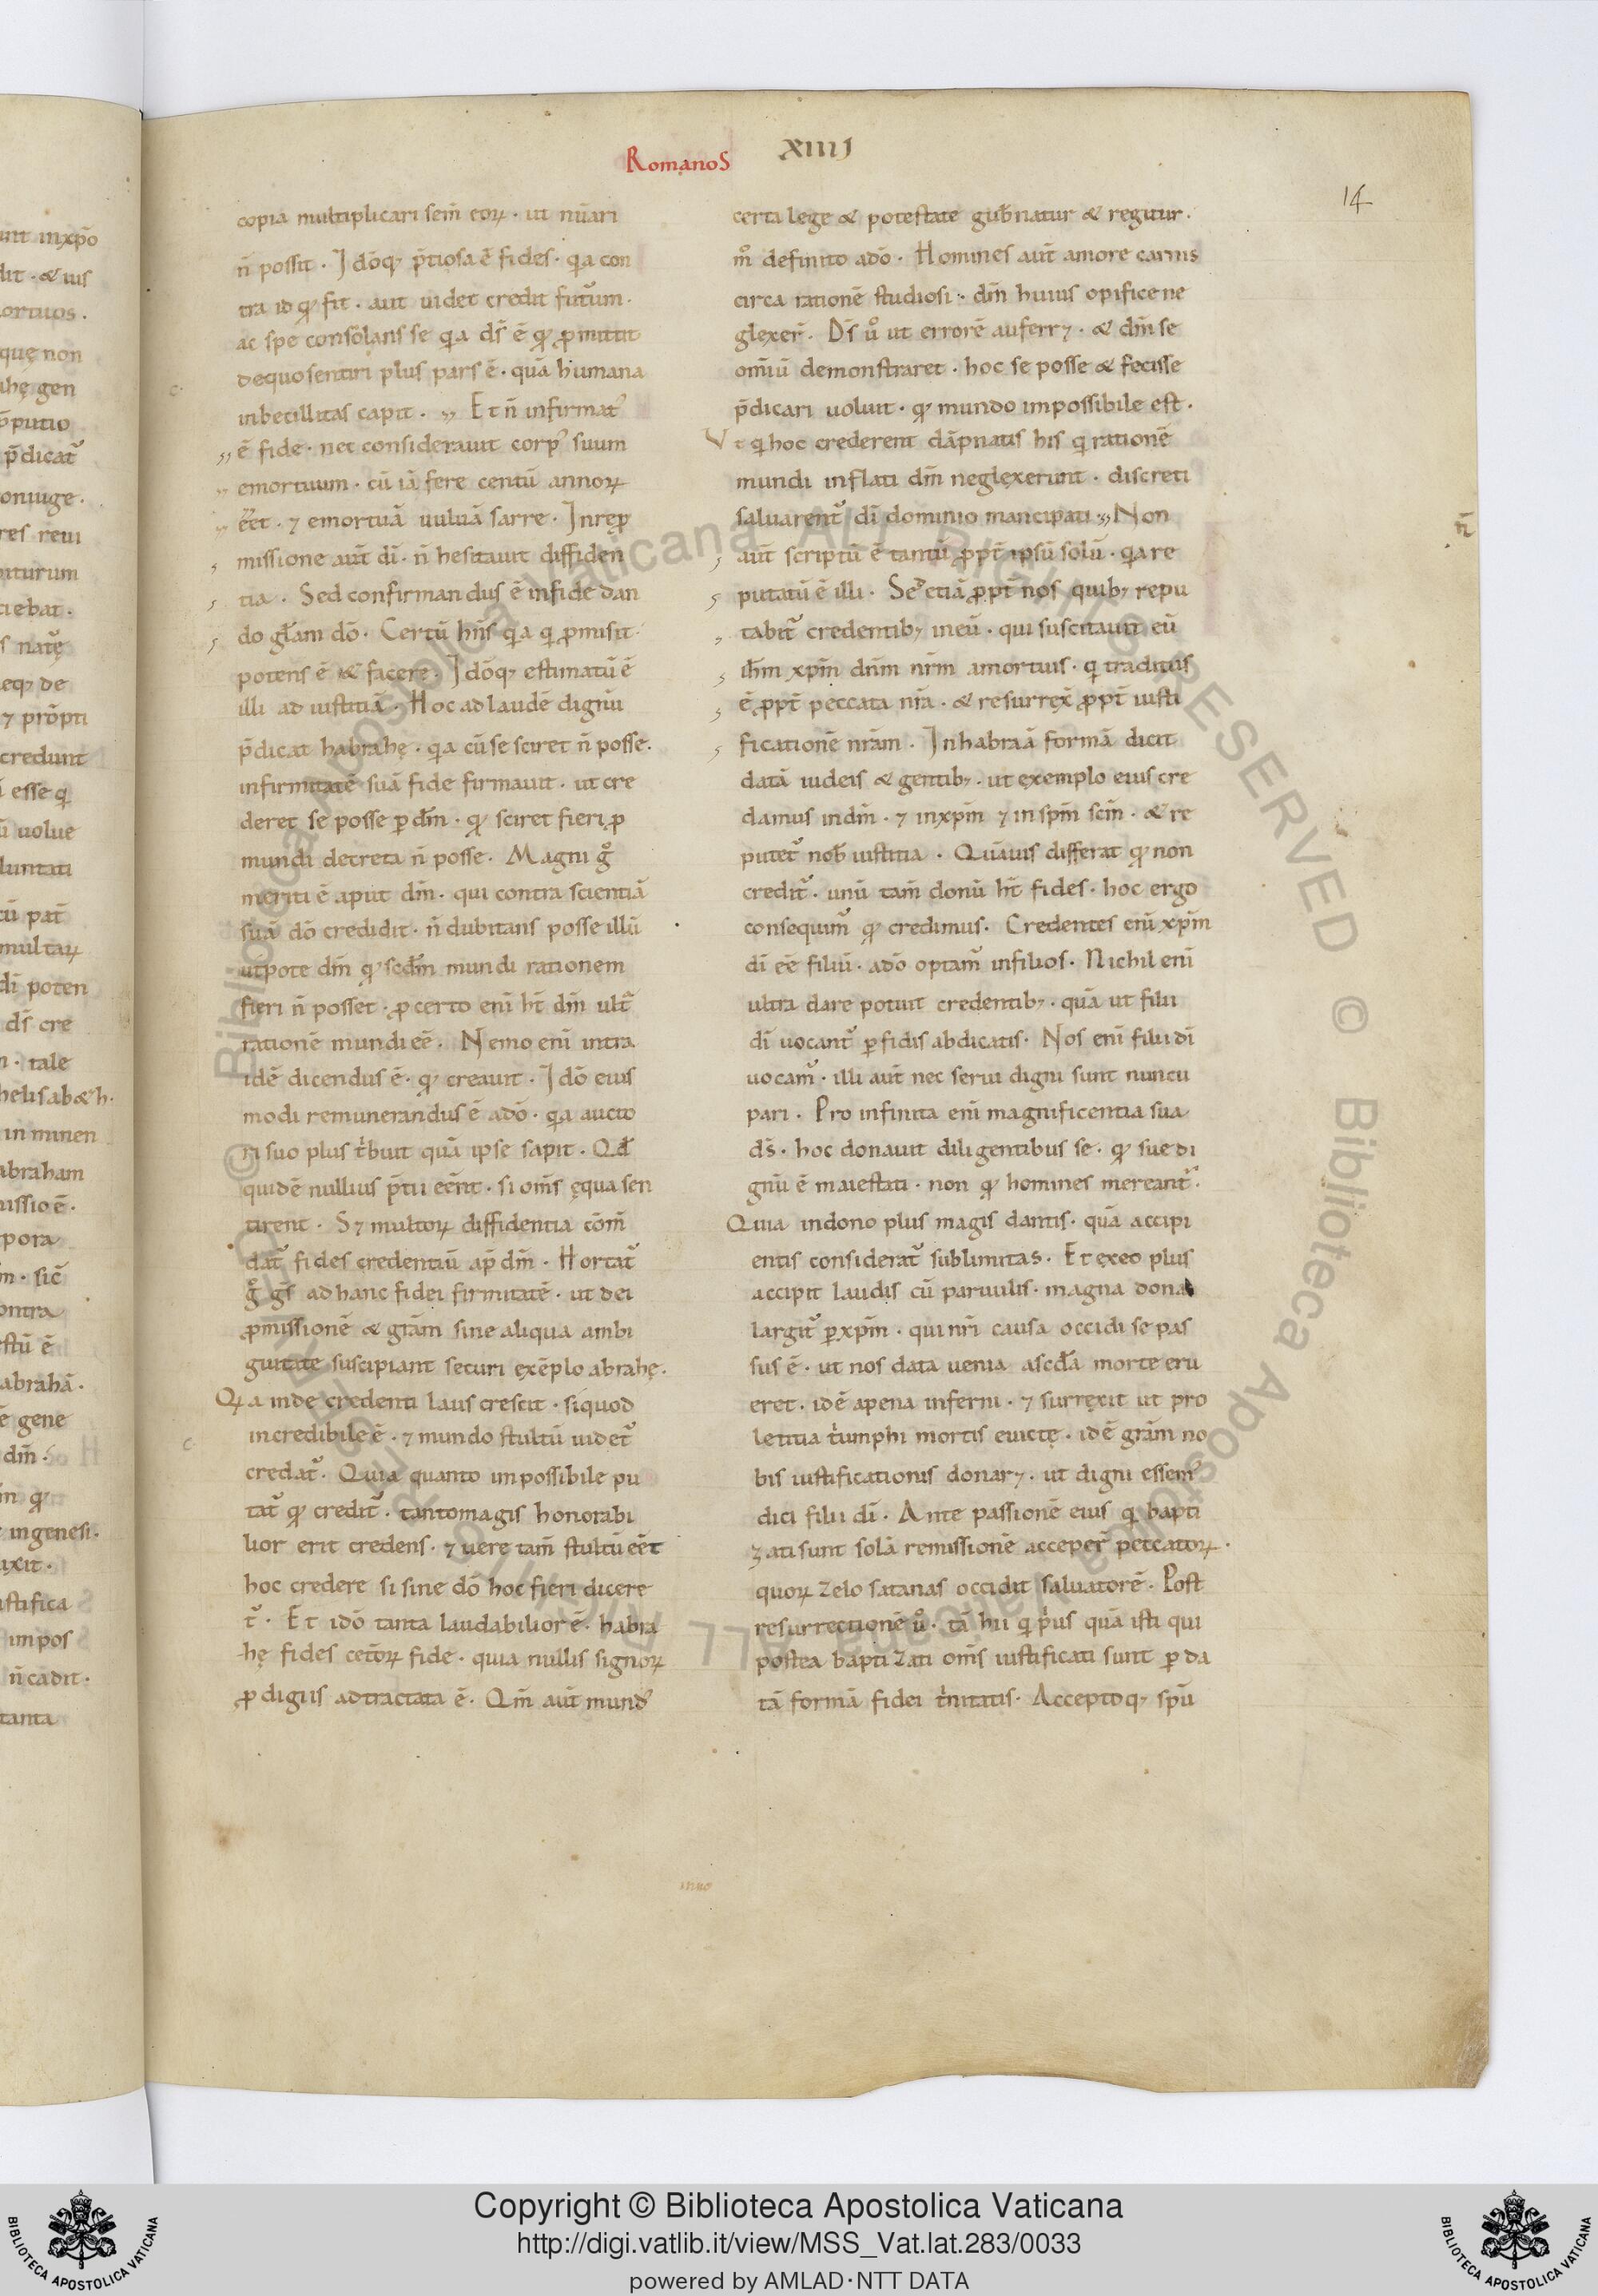 Romanos
XIIIJ
14
copia multiplicari sem̄ eoꝝ · ut nūari
n̄ possit · Idōq; p̄tiosa ē fides · q̣a con
tra id qđ fit · aut uidet credit futurum ·
ac spe consolans se q̣a ds̄ ē qđ ꝓmittit
dequo sentiri plus pars ē · quā humana
inbecillitas capit · Et n̄ infirmatꝰ
ē fide · nec considerauit corpꝰ suum
emortuum · cū iā fere centū annoꝝ
eēt · ⁊ emortuā uuluā sarre · In reꝓ
missione aūt dī · n̄ hesitauit diffiden
tia · Sed confirmandus ē infide dan
do gl̄am dō · Certū hn̄s q̣a q̣ ꝓmisit ·
potens ē & facere · Idōq; estimatū ē
illi ad iustitiā · Hoc ad laudē dignū
p̄dicat habrahę · q̣a cū se sciret n̄ posse ·
infirmitatē suā fide firmauit · ut cre
deret se posse ꝑ dm̄ · qđ sciret fieri ꝓ
mundi decreta n̄ posse · Magni gͦ
meriti ē aput dm̄ · qui contra scientiā
suā dō credidit · n̄ dubitans posse illū
utpote dm̄ qđ scdm̄ mundi rationem
fieri n̄ posset · ꝓ certo eni ht̄ dm̄ ult̄
rationē mundi eē · Nemo enī intra
idē dicendus ē · qđ creauit · Idō eius
modi remunerandus ē adō · q̣a aucto
ri suo plus t̍buit quā ipse sapit · Qđ
quidē nullius p̄tii eēnt · si om̄s ęqua sen
tirent · S⁊ multoꝝ diffidentia cōm̄
dat̄ fides credentiū ap̄ dm̄ · Hortat̄
gͦ gs̄ ad hanc fidei firmitatē · ut dei
ꝓmissionē & grām sine aliqua ambi
guitate suscipiant securi ęxēplo abrahę ·
Q̣a inde credenti laus crescit · si quod
incredibile ē · ⁊ mundo stultū uidet̄
credat̄ · Quia quanto impossibile pu
tat̄ qđ credit̄ · tantomagis honorabi
lior erit credens · ⁊ uere tam̄ stultū eēt
hoc credere si sine dō hoc fieri dicere
t̄ · Et idō tanta laudabilior ē · habra
hę fides cet̄oꝝ fide · quia nullis signoꝝ
ꝓdigiis adtractata ē · Qm̄ aūt mundꝰ
certa lege & potestate gub̄natur & regitur ·
mͦ definito adō · Homines aūt amore carnis
circa rationē studiosi · dm̄ huius opifice ne
glexer̄ · Ds̄ uͦ ut errorē auferr⁊ · & dm̄ se
om̄iū demonstraret · hoc se posse & fecisse
p̄dicari uoluit · qđ mundo impossibile est ·
Vt q̣ hoc crederent dāpnatis his q̣ rationē
mundi inflati dm̄ neglexerunt · discreti
saluarent̄ dī dominio mancipati · Non
aūt scriptū ē tantū ꝓpt̄ ipsū solū · q̣a re
putatū ē illi · Sed etiā ꝓpt̄ nos quib; repu
tabit̄ credentib; ineū · qui suscitauit eū
ih̄m xp̄m dn̄m nr̄m amortuis · q̣ traditus
ē ꝓpt̄ peccata nr̄a · & resurrex̄ ꝓpt̄ iusti
ficationē nr̄am · In habraā formā dicit
datā iudeis & gentib; · ut ęxemplo eius cre
damus indm̄ · ⁊ inxp̄m ⁊ in sp̄m scm̄ · & re
putet̄ nob̄ iustitia · Quāuis differat qđ non
credit̄ · unū tam̄ donū ht̄ fides · hoc ergo
consequim̄ qđ credimus · Credentes enī xp̄m
dī eē filiū · adō optam̄ infilios · Nichil enī
ultra dare potuit credentib; · quā ut filii
dī uocant̄ ꝑfidis abdicatis · Nos enī filii dī
uocam̄ · illi aūt nec serui digni sunt nuncu
pari · Pro infinita enī magnificentia sua
ds̄ · hoc donauit diligentibus se · qđ sue di
gnū ē maiestati · non qđ homines mereant̄ ·
Quia indono plus magis dantis · quā accipi
entis considerat̄ sublimitas · Et ęxeo plus
accipit laudis cū paruulis · magna dona
largit̄ ꝑ xp̄m · qui nr̄i causa occidi se pas
sus ē · ut nos data uenia ascd̄a morte eru
eret · idē apena inferni · ⁊ surrexit ut pro
letitia t̍umphi mortis euictę · idē grām no
bis iustificationis donar⁊ · ut digni essemꝰ
dici filii dī · Ante passionē eius q̣ bapti
zati sunt solā remissionē acceper̄ peccatoꝝ ·
quoꝝ zelo satanas occidit saluatorē · Post
resurrectionē uͦ · tā hii q̣ p̍us quā isti qui
postea baptizati om̄s iustificati sunt ꝑ da
tā formā fidei t̍nitatis · Acceptoq; sp̄u
Copyright © Biblioteca Apostolica Vaticana
http://digi.vatlib.it/view/MSS_Vat.lat.283/0033
powered by AMLAD·NTT DATA
BIBLIOTECA APOSTOLICA VATICANA
BIBLIOTECA APOSTOLICA VATICANA